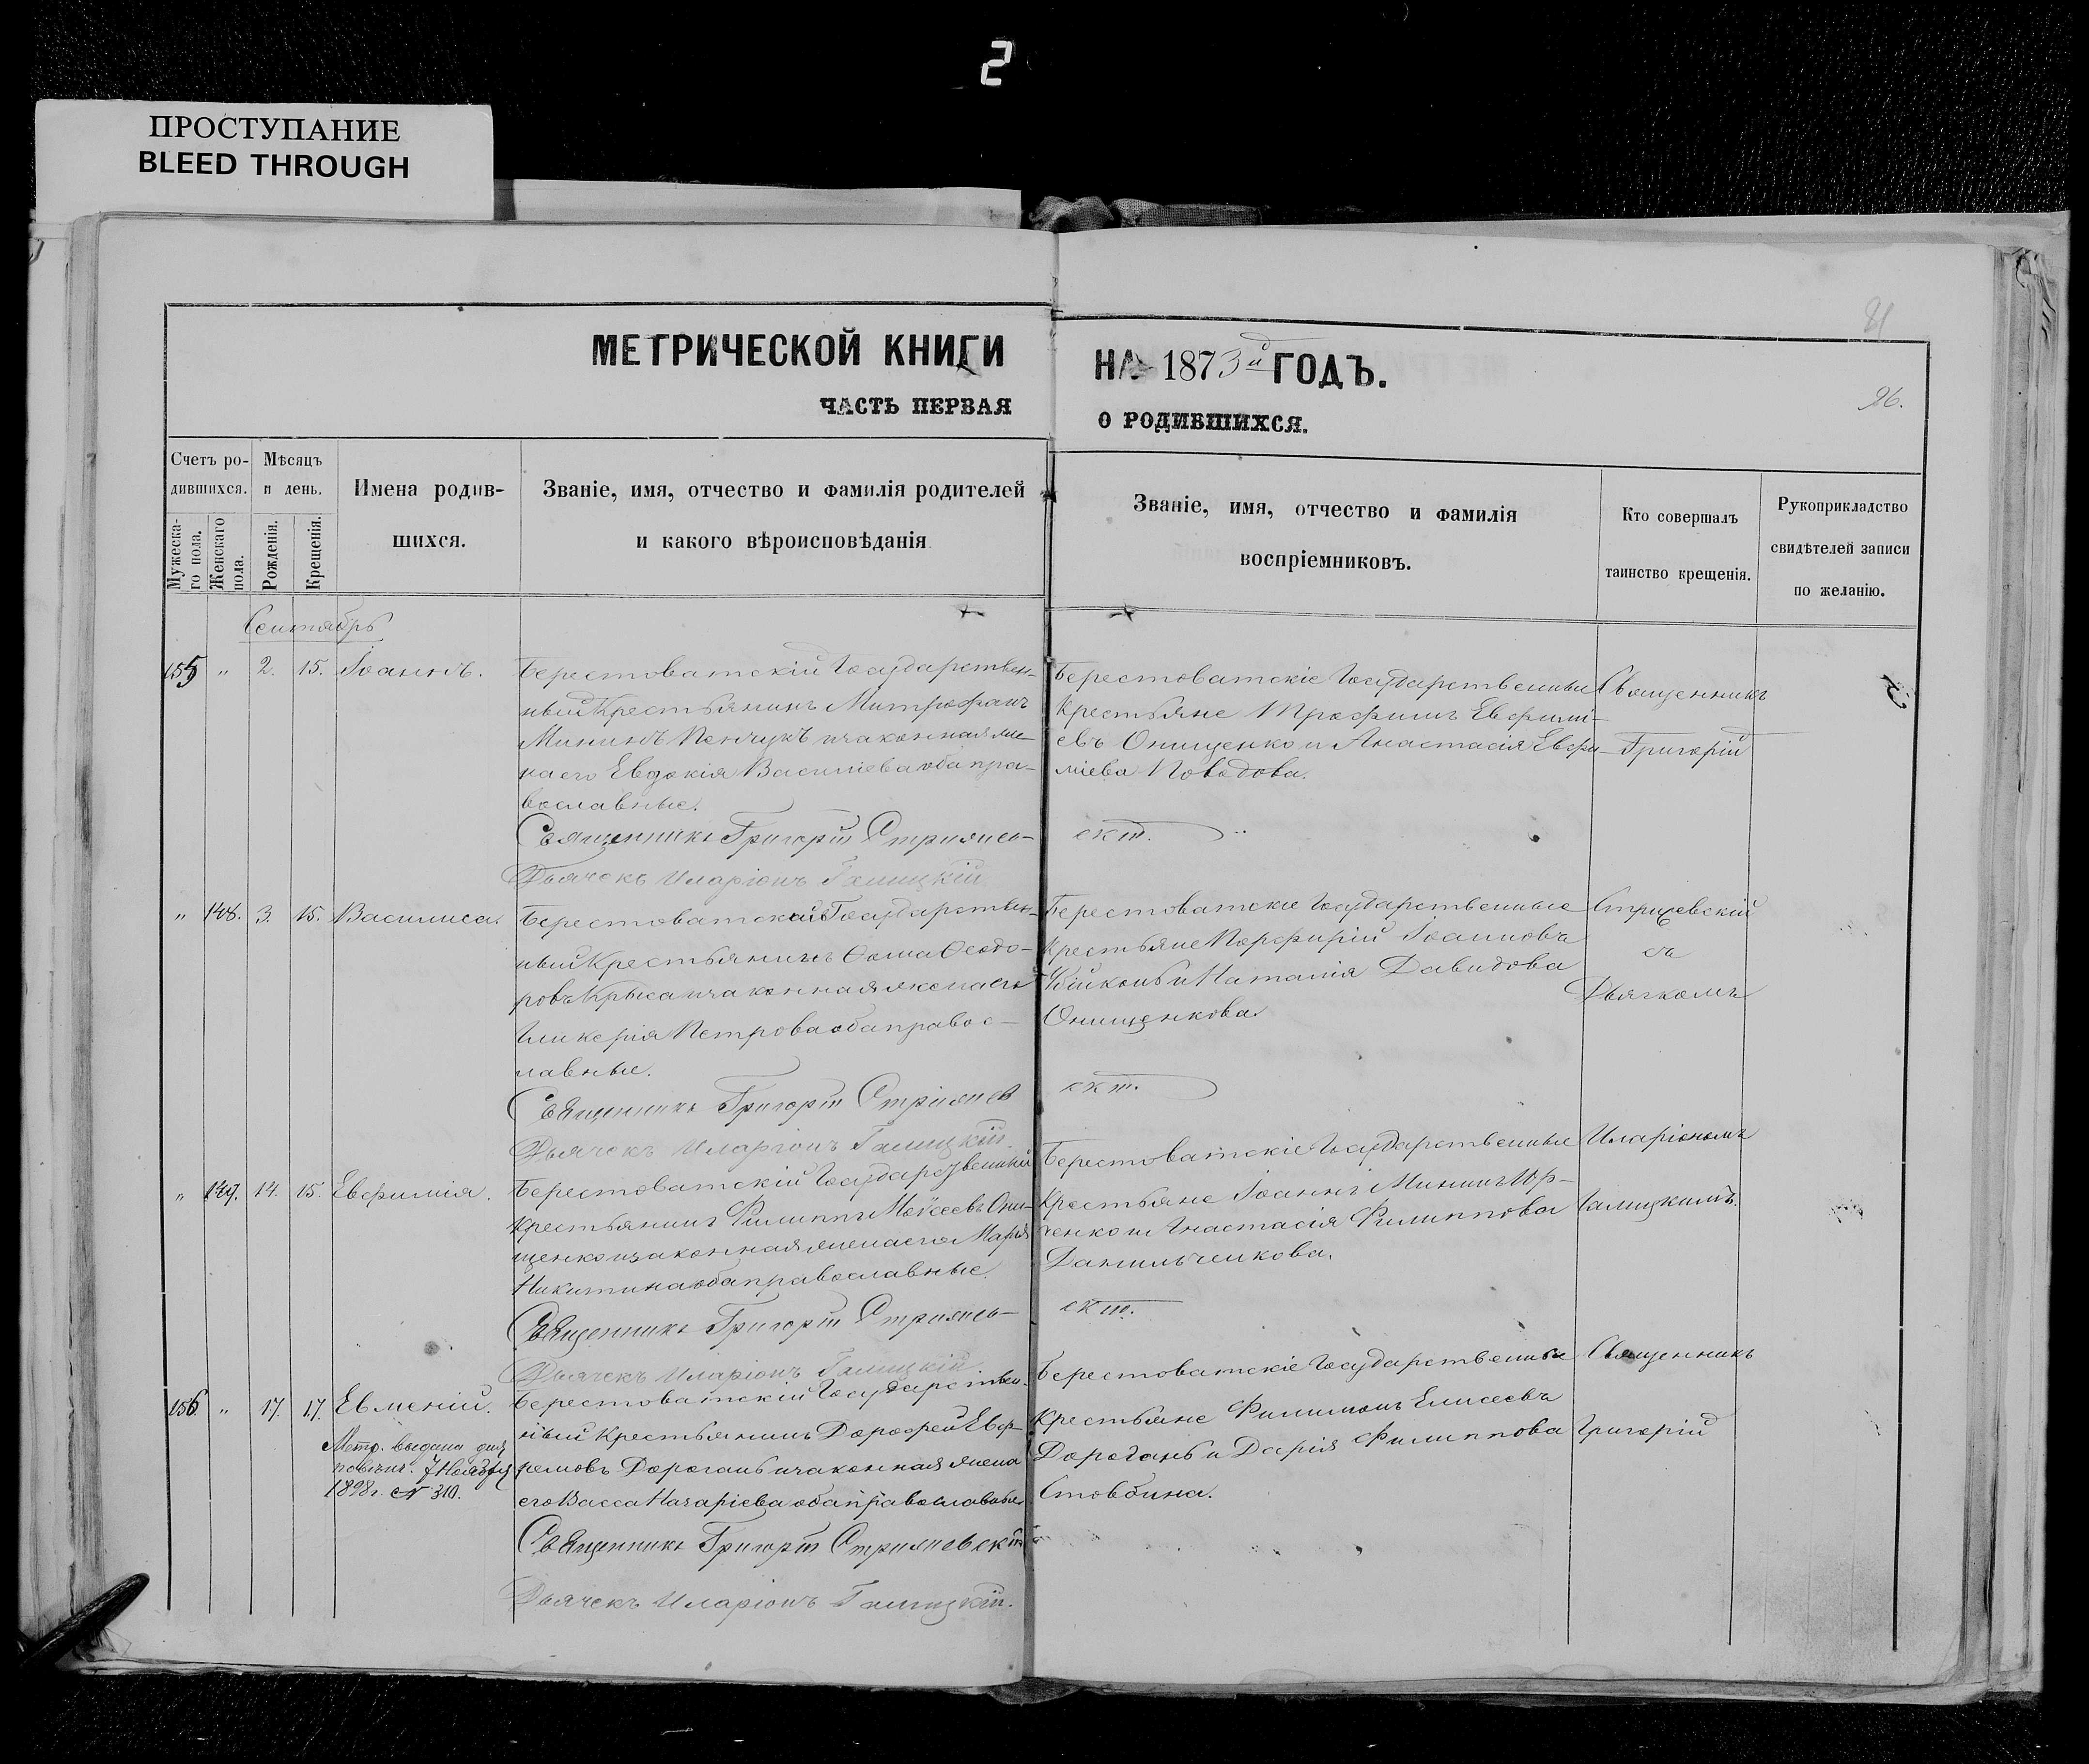 2
ПРОСТУПАНИЕ
BLEED THROUGH
21
26.
МЕТРИЧЕСКОЙ КНИГИ НА 1873й ГОДЪ.
ЧАСТЬ ПЕРВАЯ О РОДИВШИХСЯ.
Счетъ ро-
дившихся.
Мужеска-
го пола.
Женскаго
пола.
Мѣсяцъ
и день.
Рожденія.
Крещенія.
Имена родив-
шихся.
Званіе, имя, отчество и фамилія родителей
и какого вѣроисповѣданія
Званіе, имя, отчество и фамилія
воспріемниковъ.
Кто совершалъ
таинство крещенія.
Рукоприкладство
свидѣтелей записи
по желанію.
Сентябрь
155 " 2. 15. Іоаннъ.
Берестоватскій Государствен-
ный Крестьянинъ Митрофанъ
Мининъ и законная же-
на его Евдокія Василіева оба пра-
вославные.
Священникъ Григорій
Дьячекъ Иларіонъ Галицкій
Берестоватскіе Государственные
Крестьяне Трофимъ Евфимі-
евъ Онищенко и Анастасія Евфи-
міева
Священникъ
Григорій
" 148. 3. 15. Василиса.
Берестоватскій Государствен-
ный Крестьянинъ Ѳома Ѳеодо-
ровъ Крыса и законная жена его
Гликерія Петрова оба правос-
лавные.
Священникъ Григорій
Дьячекъ Иларіонъ Галицкій.
Берестоватскіе Государственные
Крестьяне Порфирій Іоанновъ
и Наталія Давидова
Онищенкова.
съ
Дьячкомъ
" 149. 14. 15. Евфимія.
Берестоватскій Государственный
Крестьянинъ Филиппъ Моѵсеевъ Они-
щенко и законная жена его Марія
Никитина оба православные.
Священникъ Григорій
Дьячекъ Иларіонъ Галицкій
Берестоватскіе Государственные
Крестьяне Іоаннъ Мининъ Юр-
ченко и Анастасія Филиппова
Данильченкова.
Иларіономъ
Галицкимъ.
156. " 17. 17. Евменій.
Метр. выдана для
7 Ноября
1898г. № 310.
Берестоватскій Государствен-
ный Крестьянинъ Дорофей Евф-
ремовъ Дорогань и законная жена
его Васса Назаріева оба православные
Священникъ Григорій
Дьячекъ Иларіонъ Галицкій.
Берестоватскіе Государственные
Крестьяне Филимонъ Елисеевъ
Дорогань и Дарія Филиппова
Стовбина.
Священникъ
Григорій